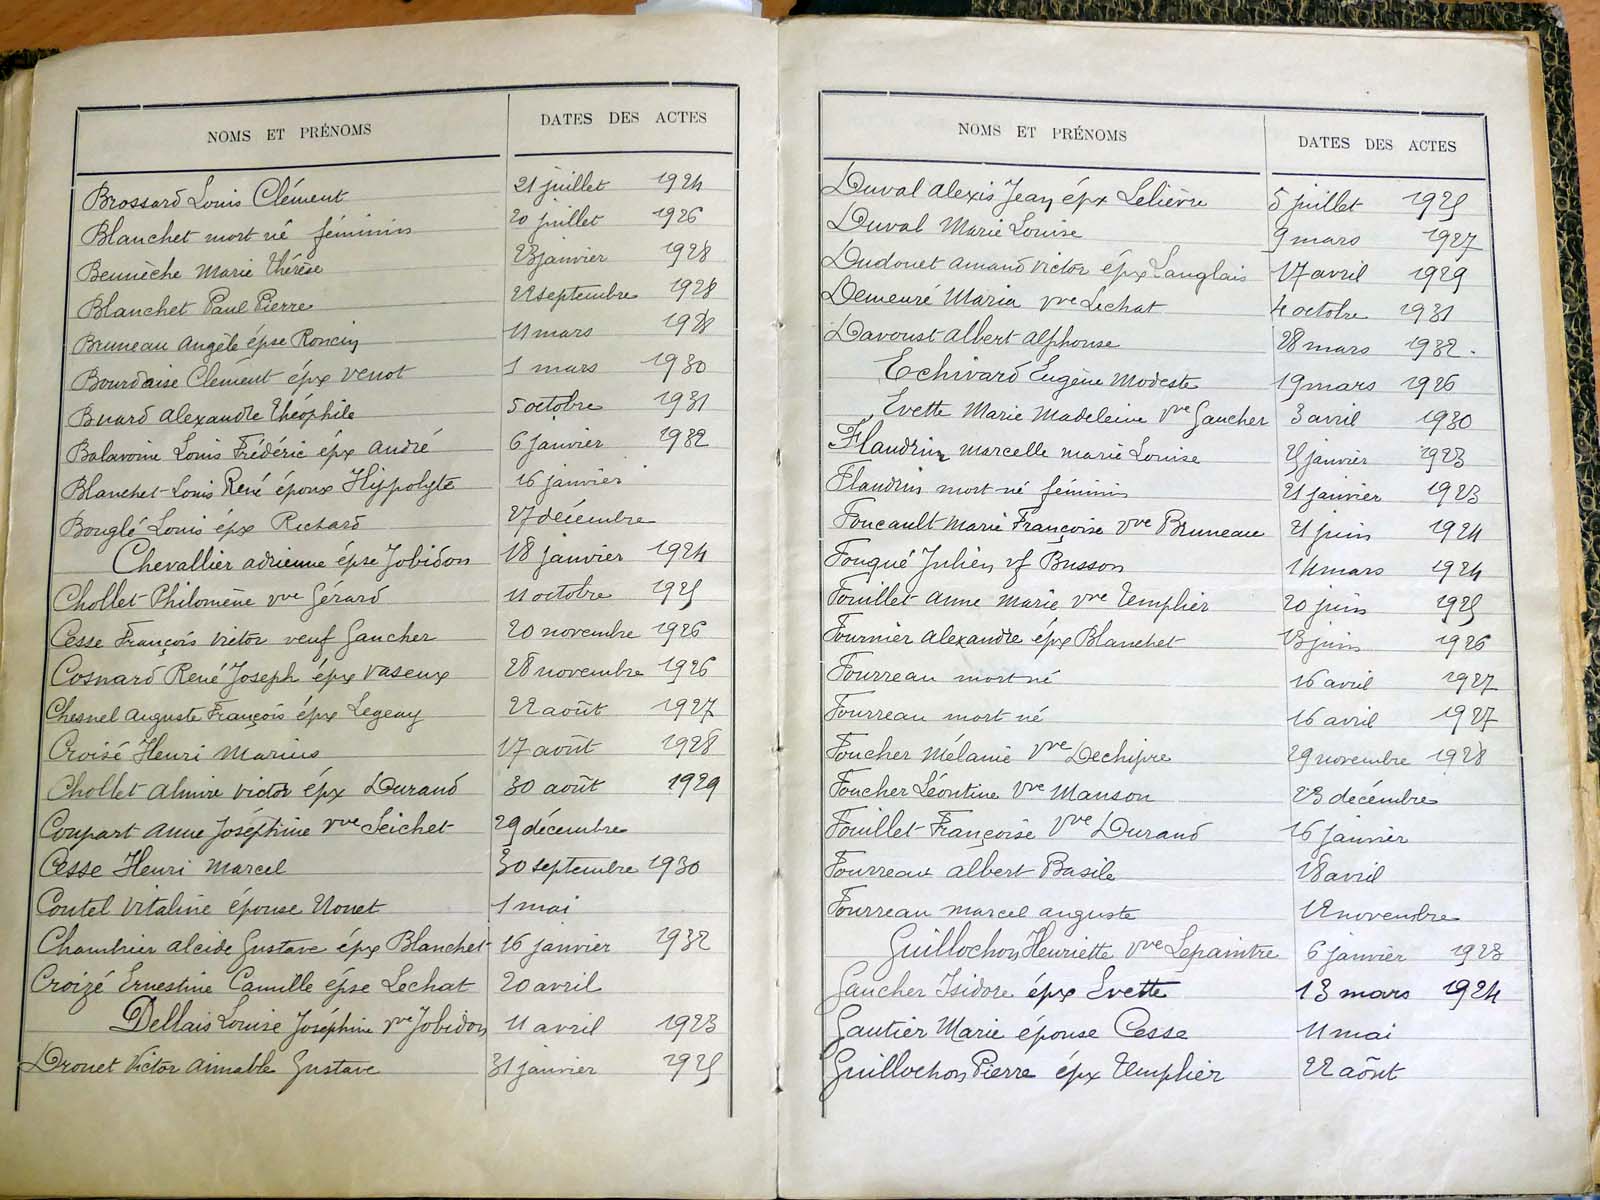 NOMS ET PRÉNOMS DATES DES ACTES
Brossard Louis Clément 21 juillet 1924
Blanchet mort né féminin 20 juillet 1926
Beunèche Marie Thérèse 23 janvier 1928
Blanchet Paul Pierre 22 septembre 1928
Bruneau Angèle épse Roncin 11 mars 1928
Bourdaise Clément épx Venot 1 mars 1930
Buard Alexandre Théophile 5 octobre 1931
Balavoine Louis Frédéric épx André 6 janvier 1932
Blanchet Louis René époux Hippolyte 16 janvier
Bouglé Louis épx Richard 27 décembre
Chevallier Adrienne épse Jobidon 18 janvier 1924
Chollet Philomène vve Gérard 11 octobre 1925
Cesse François Victor veuf Gaucher 20 novembre 1926
Cosnard René Joseph épx Vaseux 28 novembre 1926
Chesnel Auguste François épx Legeay 22 août 1927
Croisé Henri Marius 17 août 1928
Chollet Almire Victor épx Durand 30 août 1929
Coupart Anne Joséphine vve Seichet 29 décembre
Cesse Henri Marcel 30 septembre 1930
Coutel Vitaline épouse Nouet 1 mai
Chambrier Alcide Gustave épx Blanchet 16 janvier 1932
Croizé Ernestine Camille épse Lechat 20 avril
Dellais Louise Joséphine vve Jobidon 11 avril 1923
Drouet Victor Aimable Gustave 31 janvier 1925
NOMS ET PRÉNOMS DATES DES ACTES
Duval Alexis Jean épx Lelièvre 5 juillet 1925
Duval Marie Louise 9 mars 1927
Dudouet Amand Victor épx Langlais 17 avril 1929
Demeuré Maria vve Lechat 4 octobre 1931
Davoust Albert Alphonse 28 mars 1932.
Echivard Eugène Modeste 19 mars 1926
Evette Marie Madeleine vve Gaucher 3 avril 1930
Flandrin Marcelle Marie Louise 21 janvier 1923
Flandrin mort né féminin 21 janvier 1923
Foucault Marie Françoise vve Bruneau 21 juin 1924
Fouqué Julien vf Busson 14 mars 1924
Fouillet Anne Marie vve Templier 20 juin 1925
Fournier Alexandre épx Blanchet 13 juin 1926
Fourreau mort né 16 avril 1927
Fourreau mort né 16 avril 1927
Foucher Mélanie vve Dechipre 29 novembre 1928
Foucher Léontine vve Manson 23 décembre
Fouillet Françoise vve Durand 16 janvier
Fourreau Albert Basile 18 avril
Fourreau Marcel Auguste 12 novembre
Guillochon Henriette vve Lepaintre 6 janvier 1923
Gaucher Isidore épx Evette 13 mars 1924
Gautier Marie épouse Cesse 11 mai
Guillochon Pierre épx Templier 22 août